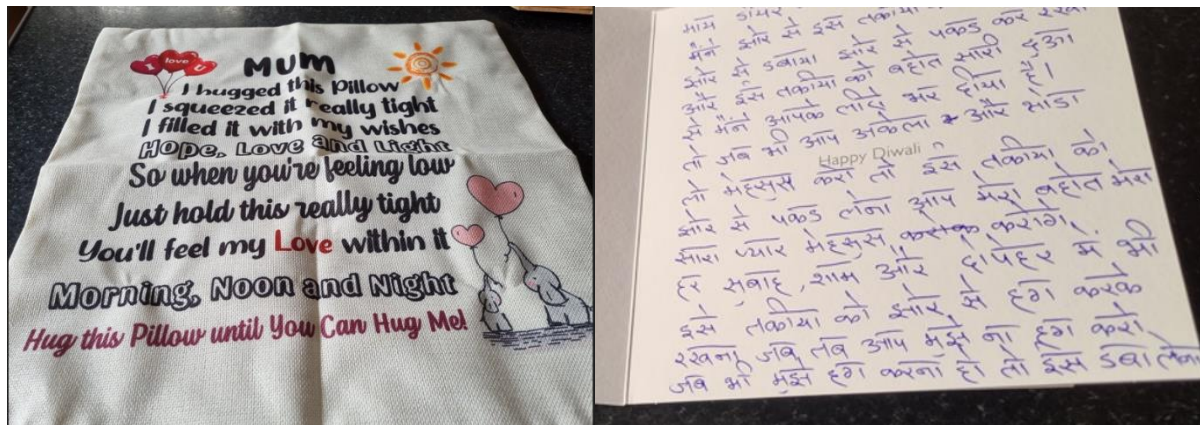 I love U
MUM
I hugged this Pillow
I squeezed it really tight
I filled it with my wishes
Hope, Love and Light
So when you're feeling low
Just hold this really tight
You'll feel my Love within it
Morning, Noon and Night
Hug this Pillow until You Can Hug Me!
माय डीयर
मैंने झोर से इसे तकीया
झोर से दबाया झोर से पकड कर रखा
और इस तकीया को बहोत सारी दुआ
से मैंने आपके लीये भर दीया है।
तो जब भी आप अकेला और थोडा
Happy Diwali
लो मेहसुस करो तो इस तकीया को
झोर से पकड लेना आप मेरा बहोत मेरा
सारा प्यार मेहसुस करोगे,
हर सुबाह, शाम और दोपेहर में भी
इसे तकीया को झोर से हग करके
रखना जब तब आप मुझे ना हग करो,
जब भी मुझे हग करना हो तो इस दबा लेना